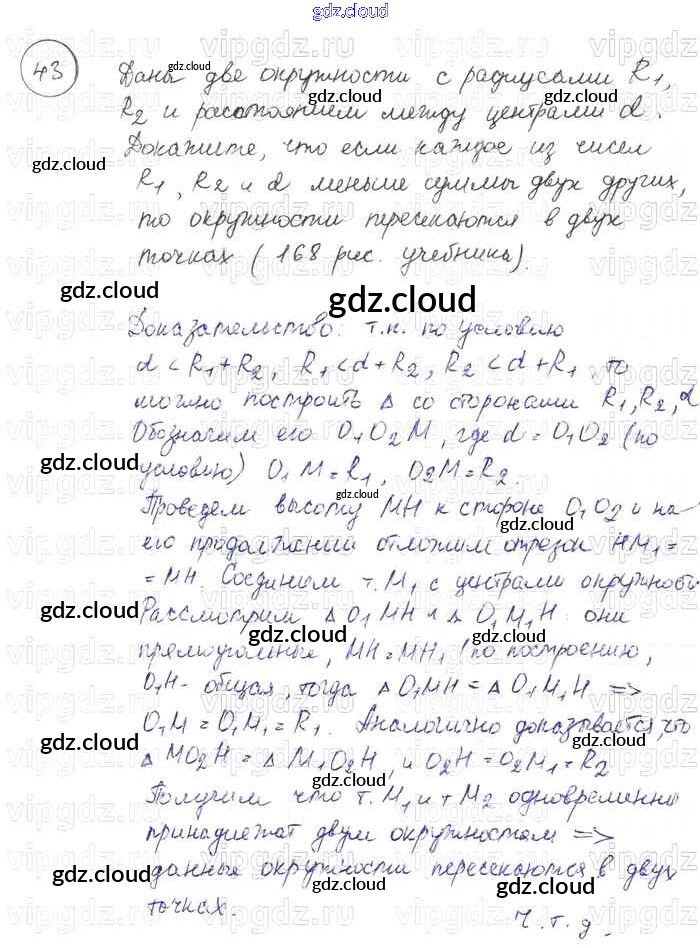 gdz.cloud
43
Даны две окружности с радиусами R1,
R2 и расстоянием между центрами d.
Докажите, что если каждое из чисел
R1, R2 и d меньше суммы двух других,
то окружности пересекаются в двух
точках (168 рис. учебника).
gdz.cloud
Доказательство: т.к. по условию
d < R1 + R2, R1 < d + R2, R2 < d + R1, то
можно построить Δ со сторонами R1, R2, d
Обозначим его O1O2M, где d = O1O2 (по
условию) O1M = R1, O2M = R2.
Проведем высоту MH к стороне O1O2 и на
его продолжении отложим отрезок HM1 =
= MH. Соединим т. M1 с центрами окружность
Рассмотрим Δ O1MH и Δ O1M1H: они
прямоугольные, MH = MH1 (по построению,
O1H - общая, тогда Δ O1MH = Δ O1M1H =>
O1M = O1M1 = R1. Аналогично доказывается, что
Δ MO2H = Δ M1O2H, и O2H = O2M1 = R2
Получим что т. M1 и т M2 одновременно
принадлежат двум окружностям =>
данные окружности пересекаются в двух
точках.
Ч.т.д.